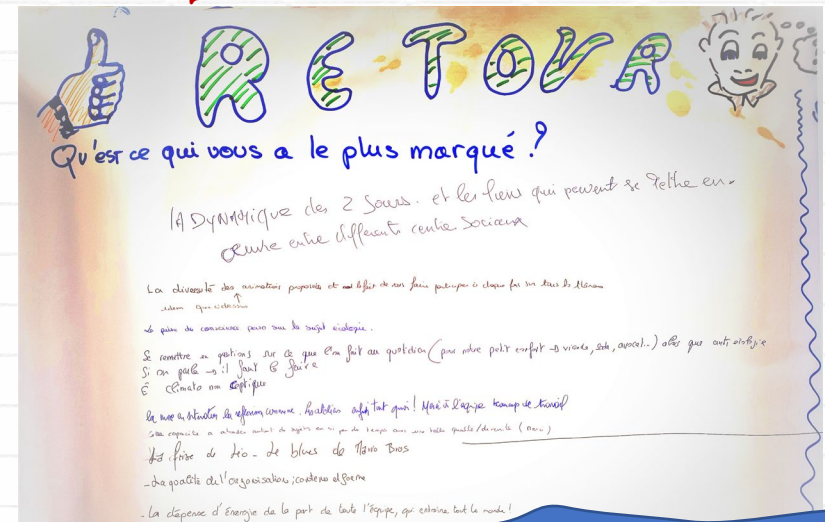 RETOUR
Qu'est ce qui vous a le plus marqué ?
LA DYNAMIQUE des 2 Jours. et les liens qui peuvent se mettre en
œuvre entre différents centre Sociaux
La diversité des animations proposées et le fait de nous faire participer à chaque fois sur tous les thèmes
idem que ci-dessus
La prise de conscience perso sur le sujet écologie.
Se remettre en questions sur ce que l'on fait au quotidien (pour notre petit confort → viande, soda, avocat...) alors que anti écologie
Si on parle → il faut le faire
climato non sceptique
la mise en situation la réflexion commune. tout quoi ! Merci à l'équipe beaucoup de travail
capacité à autant de sujets en si peu de temps avec une telle qualité/diversité (Merci)
La frise de Léo - Le blues de Mario Bros
- La qualité de l'organisation; contenu et forme
- La dépense d'énergie de la part de toute l'équipe, qui entraine tout le monde !